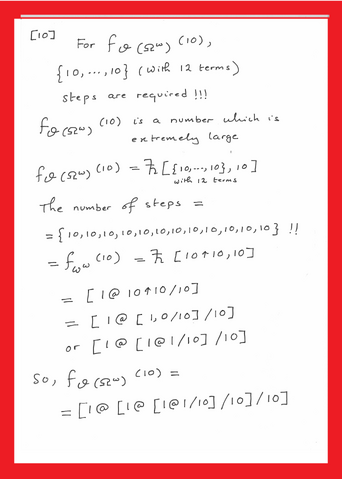 [10]
For fϑ(Ωω) (10),
{10,...,10} (with 12 terms)
steps are required !!!
fϑ(Ωω) (10) is a number which is
extremely large
fϑ(Ωω) (10) = ℏ[{10,...,10},10]
with 12 terms
The number of steps =
= {10,10,10,10,10,10,10,10,10,10,10,10} !!
= fωω (10) = ℏ [10↑10,10]
= [1@ 10↑10/10]
= [1@ [1,0/10]/10]
or [1@ [1@1/10]/10]
So, fϑ(Ωω) (10) =
= [1@ [1@ [1@1/10]/10]/10]